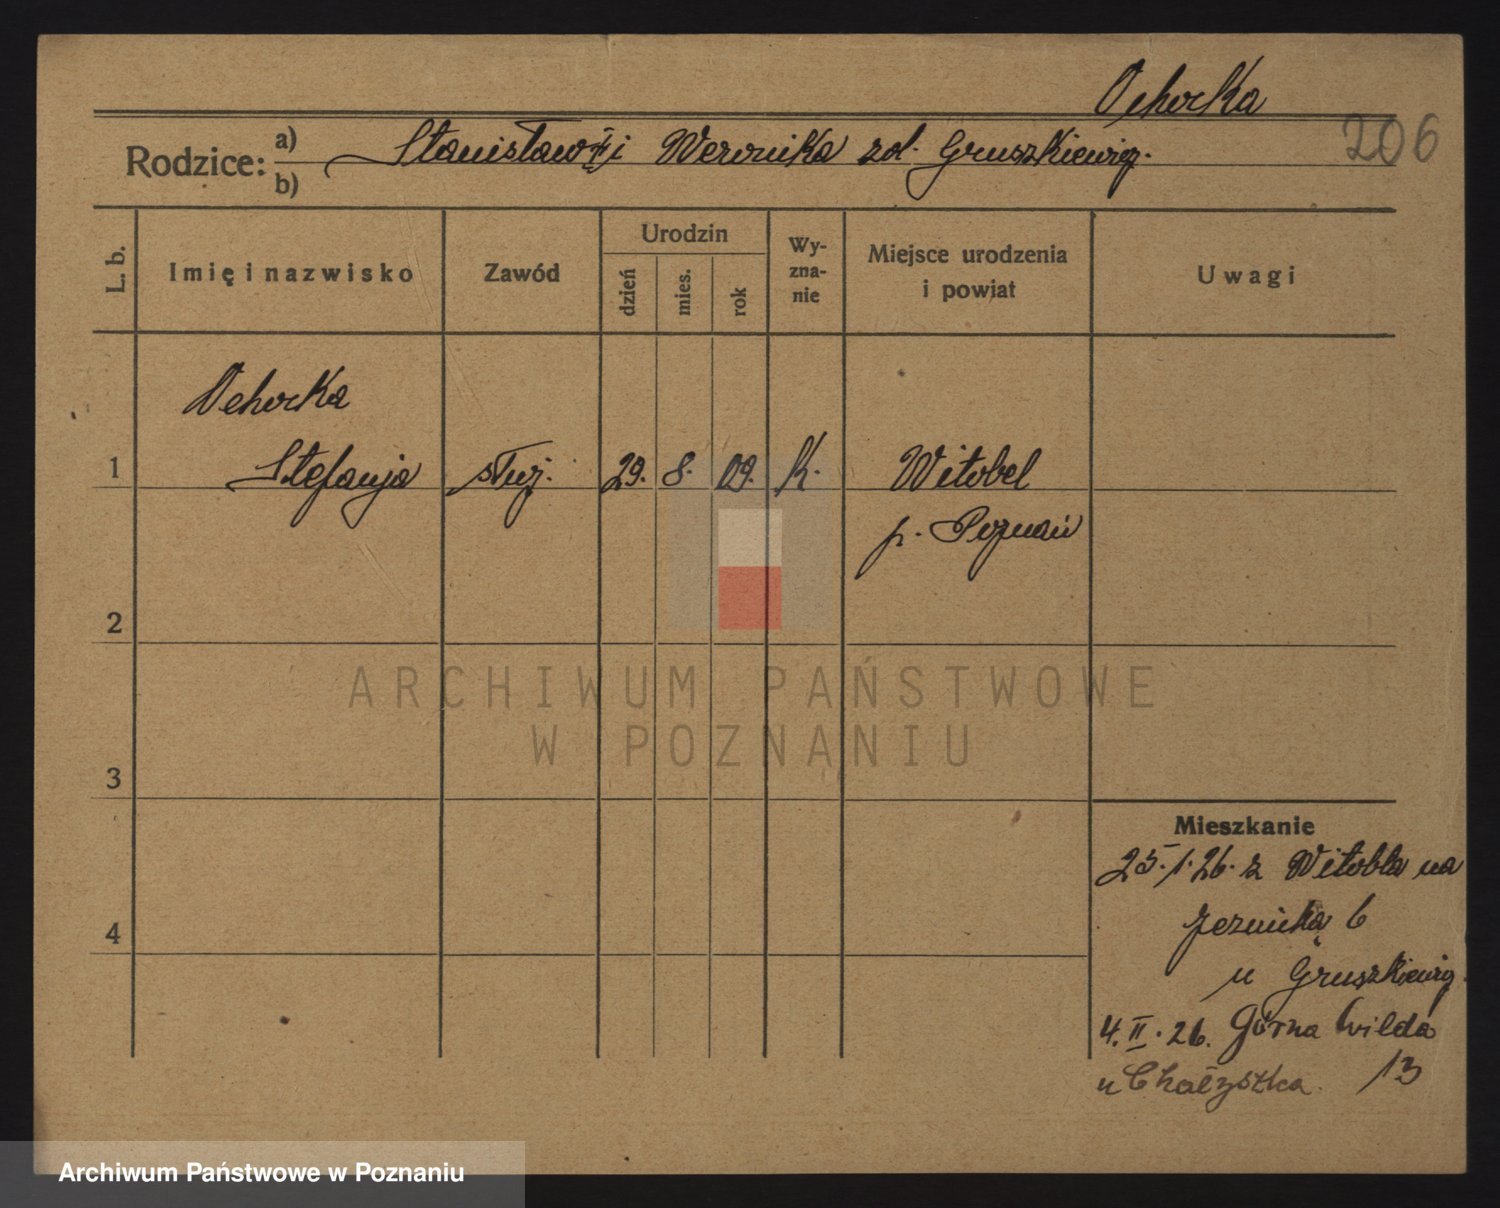 Ochocka
206
Rodzice: a) Stanisław i Weronika zd. Gruszkiewicz.
b)
L. b.
Imię i nazwisko
Zawód
Urodzin
dzień
mies.
rok
Wy-
zna-
nie
Miejsce urodzenia
i powiat
Uwagi
Ochocka
1 Stefanja służ. 29. 8. 09. k. Witobel
p. Poznań
2
3
4
Mieszkanie
25.1.26. z Witobla na
6
u Gruszkiewicz.
4.II.26. Górna Wilda
13
u
ARCHIWUM PAŃSTWOWE
W POZNANIU
Archiwum Państwowe w Poznaniu